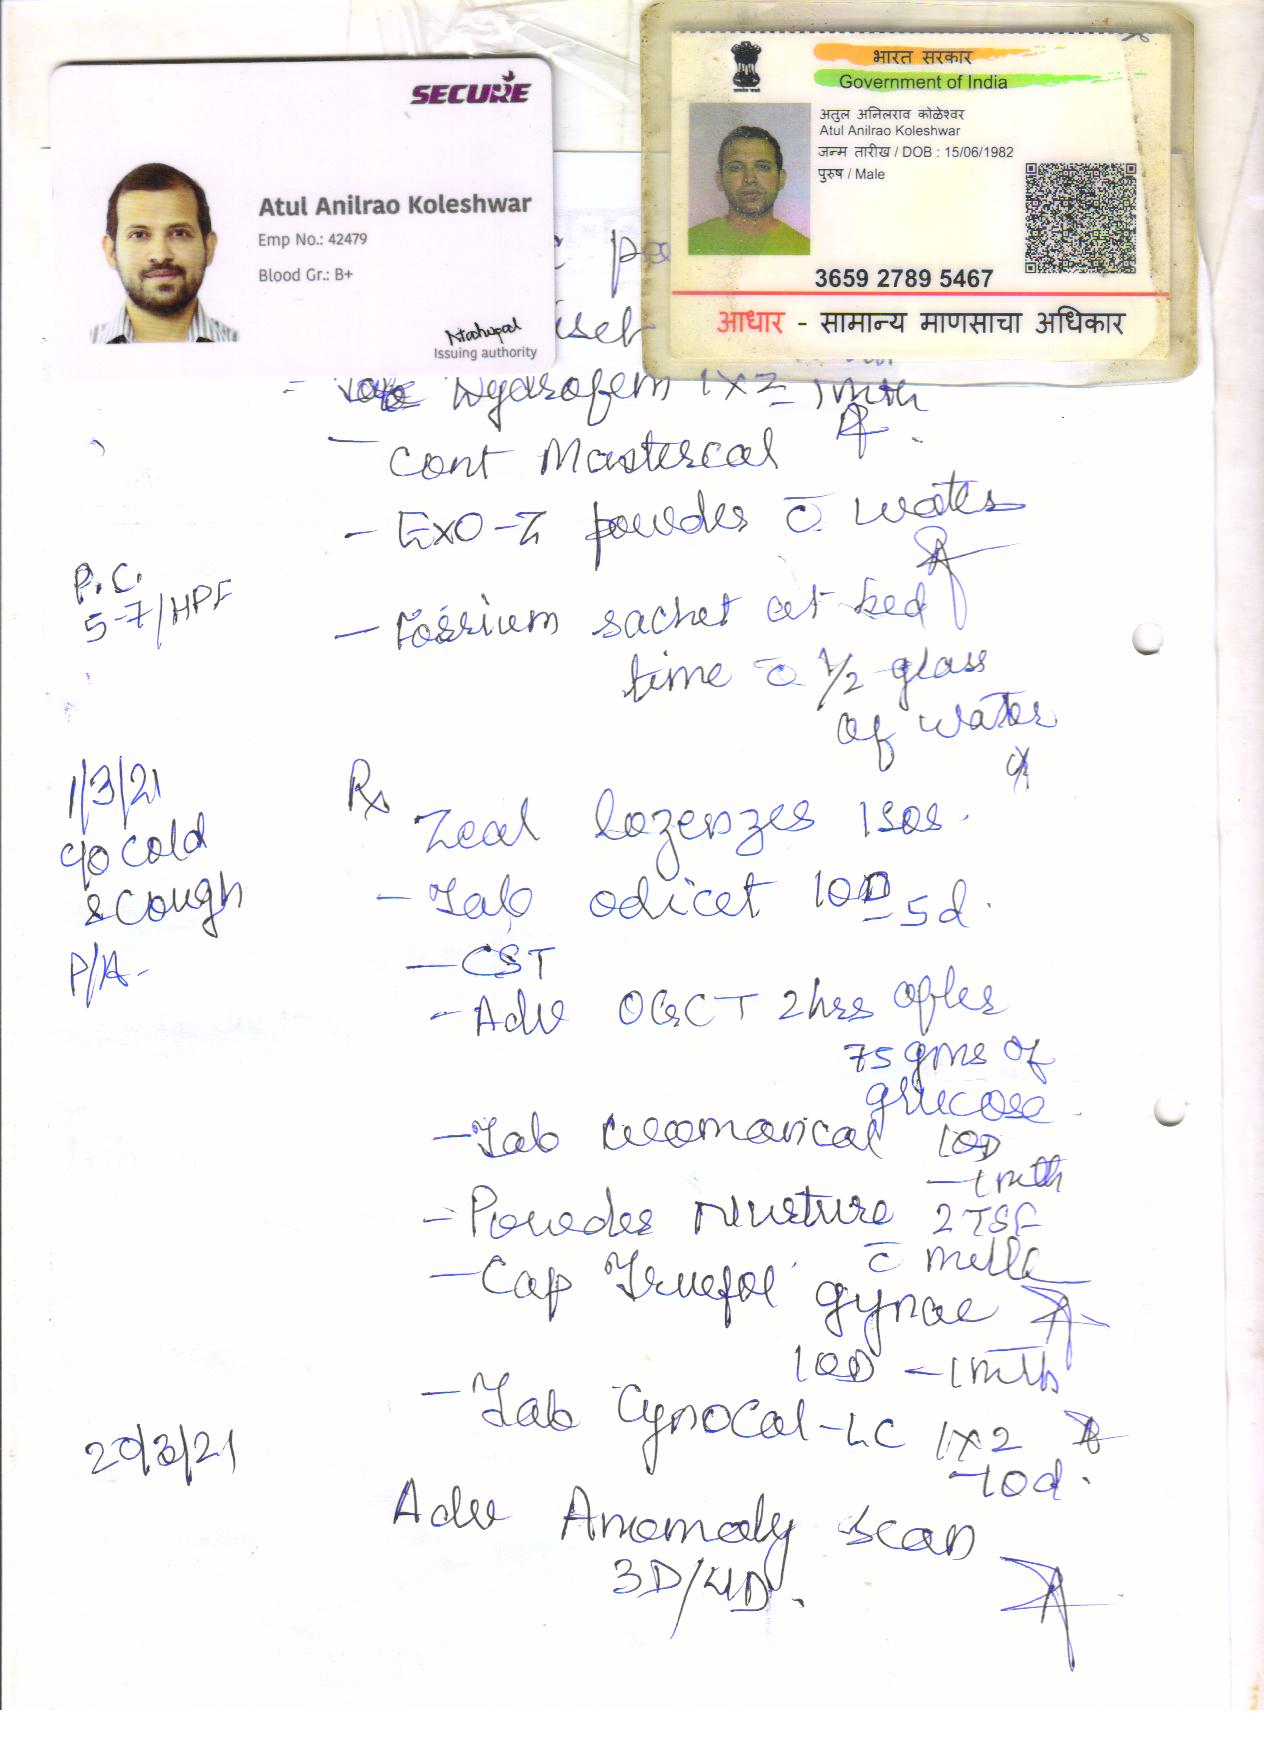 SECURE
Atul Anilrao Koleshwar
Emp No.: 42479
Blood Gr.: B+
Issuing authority
भारत सरकार
Government of India
अतुल अनिलराव कोळेश्वर
Atul Anilrao Koleshwar
जन्म तारीख / DOB : 15/06/1982
पुरुष / Male
3659 2789 5467
आधार - सामान्य माणसाचा अधिकार
1X2 1mth
- Cont Mastercal
- EXO-Z powder c̄ water
P.C.
5-7/HPF
- Fosirium sachet at bed
time c̄ 1/2 glass
of water
1/3/21
c/o cold
& cough
P/A -
Rx
Zeal lozenzes 1sos.
- Tab odicet 1OD - 5d.
- CST
- Adv OGCT 2hrs after
75 gms of
glucose.
- Tab 1OD
- 1mth
- Powder Nurture 2 TSF
c̄ milk
- Cap Truefol gynae
1OD - 1mth
- Tab Gynocal-LC 1x2
- 10d.
20/3/21
Adv Anomaly scan
3D/4D.